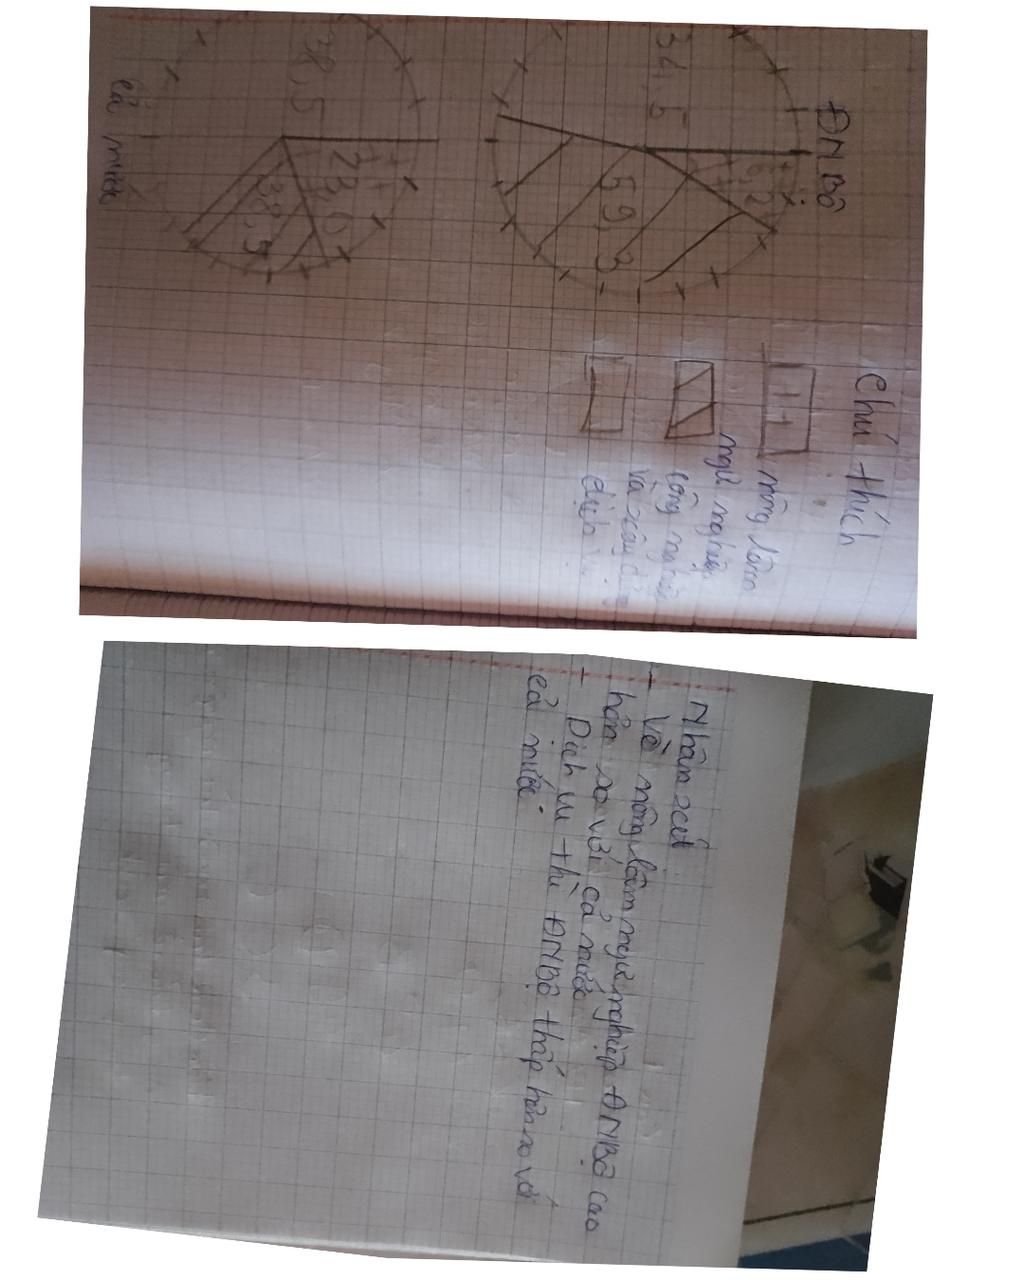 ĐNBộ
34,5
6,2
59,3
38,5
23,0
38,5
cả nước
Chú thích
nông lâm
ngư nghiệp
công nghiệp
và xây dựng
dịch vụ
Nhận xét
- Về nông lâm ngư nghiệp ĐNBộ cao
hơn so với cả nước
- Dịch vụ thì ĐNBộ thấp hơn so với
cả nước.